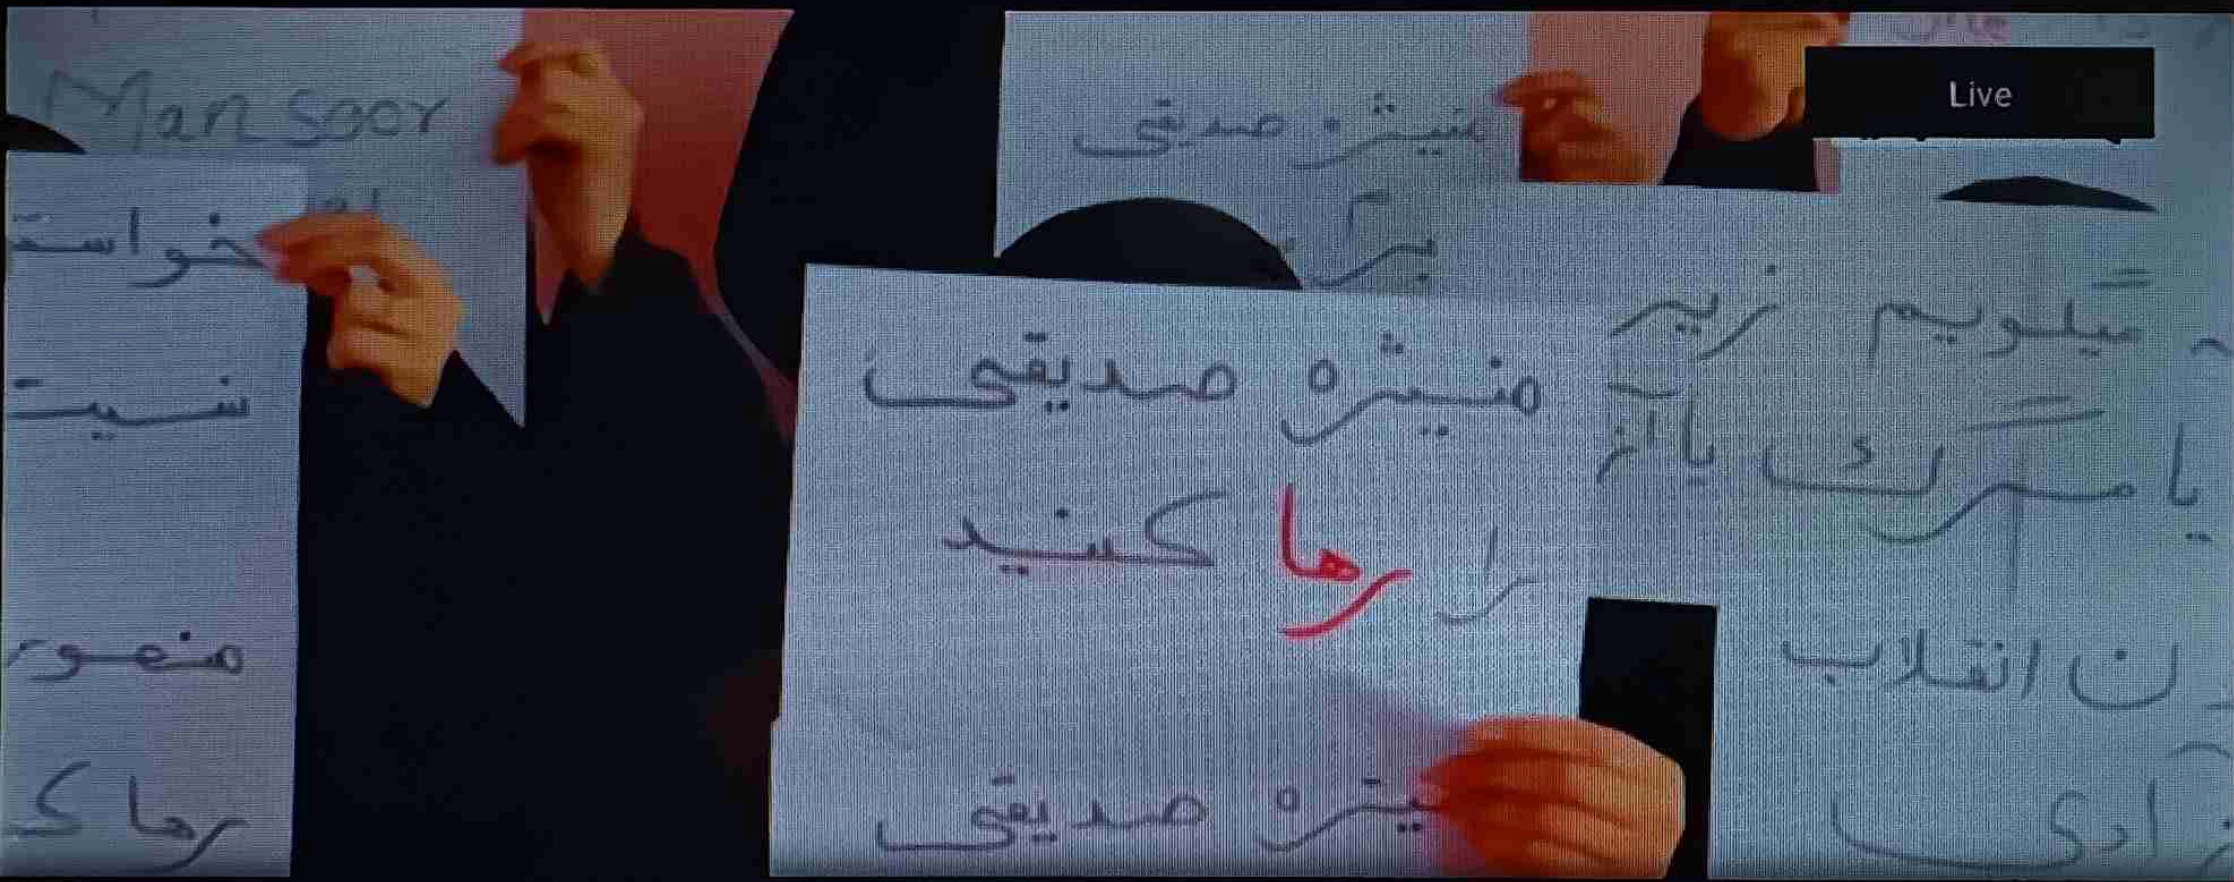 Mansoor
خواست
نسیت
منصور
رها ک
منیژه صدیقی
را
Live
منیژه صدیقی
را رها کنید
منیژه صدیقی
میگویم زیر
یا مرگ یا آز
ن انقلاب
زادی